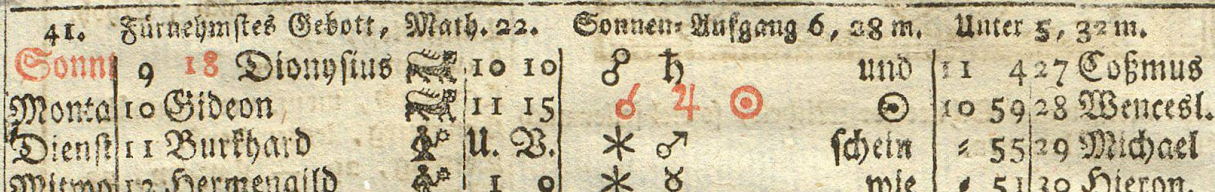 41. Fürnehmstes Gebott, Math. 22. Sonnen-Aufgang 6, 28 m. Unter 5, 32 m.
Sonn 9 18 Dionysius 10 10 ☍ ♄ und 11 4 27 Coßmus
Monta 10 Gideon 11 15 ☌ ♃ ☉ ☉ 10 59 28 Wencesl.
Dienst 11 Burkhard U. V. ⚹ ♂ schein = 55 29 Michael
Mitwo 12 Hermengild 1 0 ⚹ ☿ wie = 51 30 Hieron.